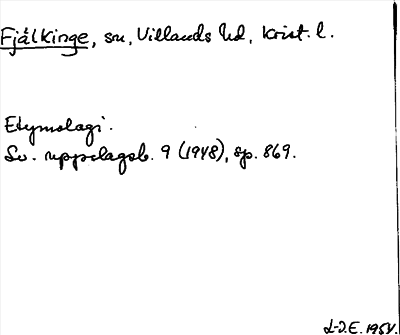 Fjälkinge, sn, Villands hd, Krist. l.
Etymologi.
Sv. uppslagsb. 9 (1948), sp. 869.
L-J.E. 1954.